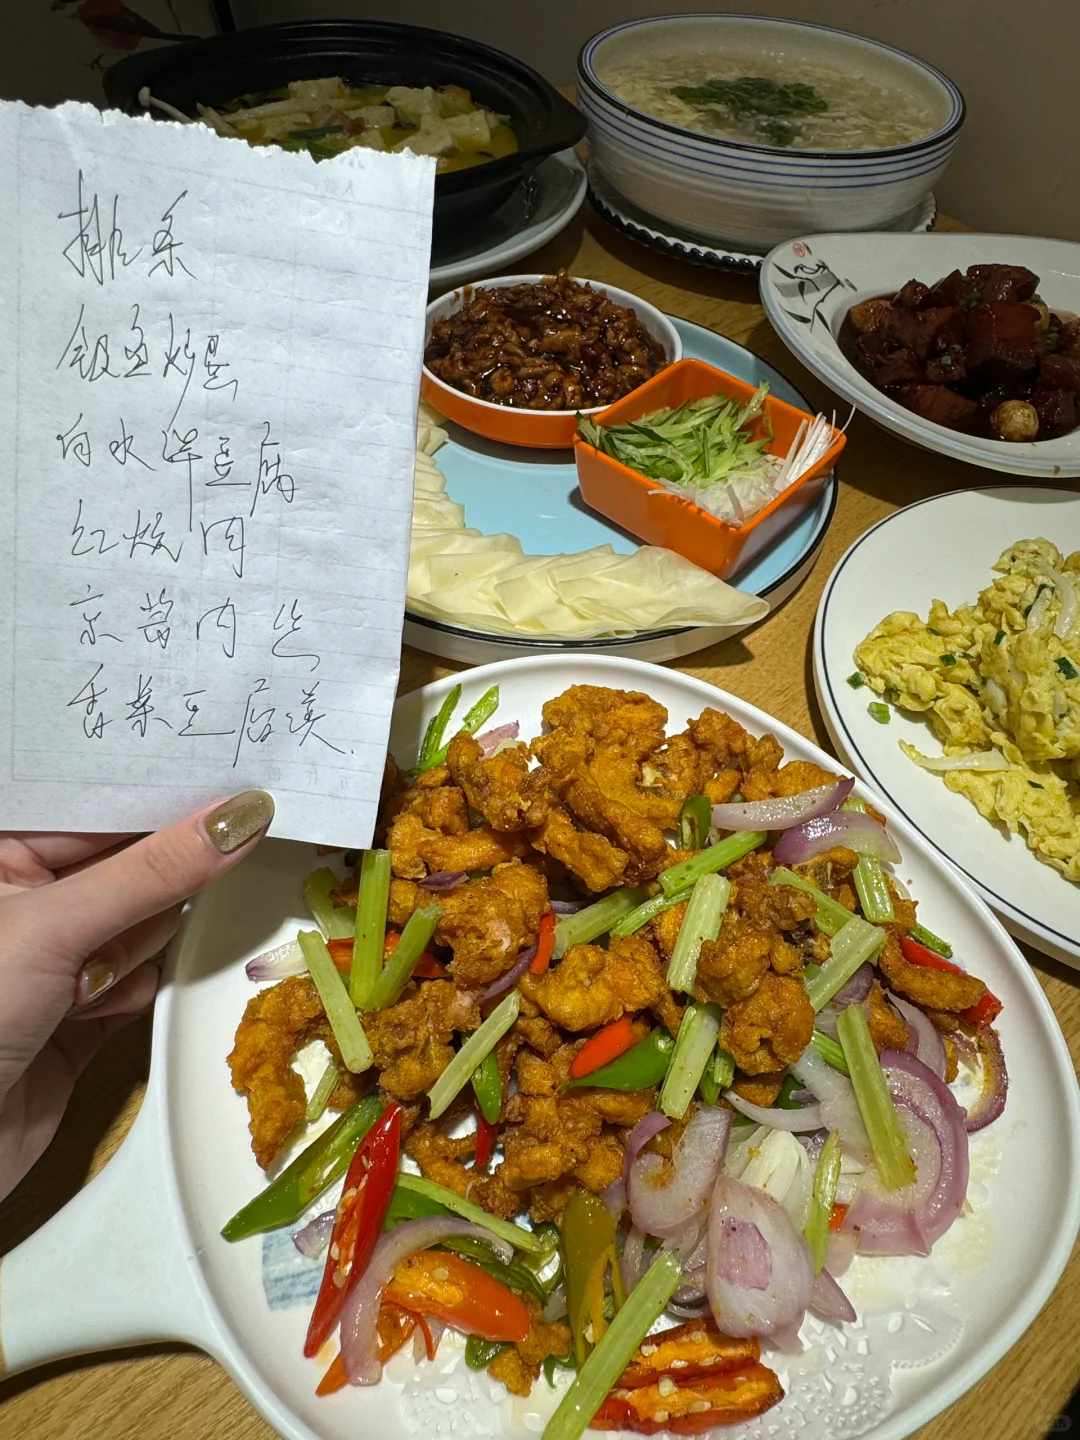 排条
银鱼炒蛋
白水洋豆腐
红烧肉
京酱肉丝
香菜豆腐羹